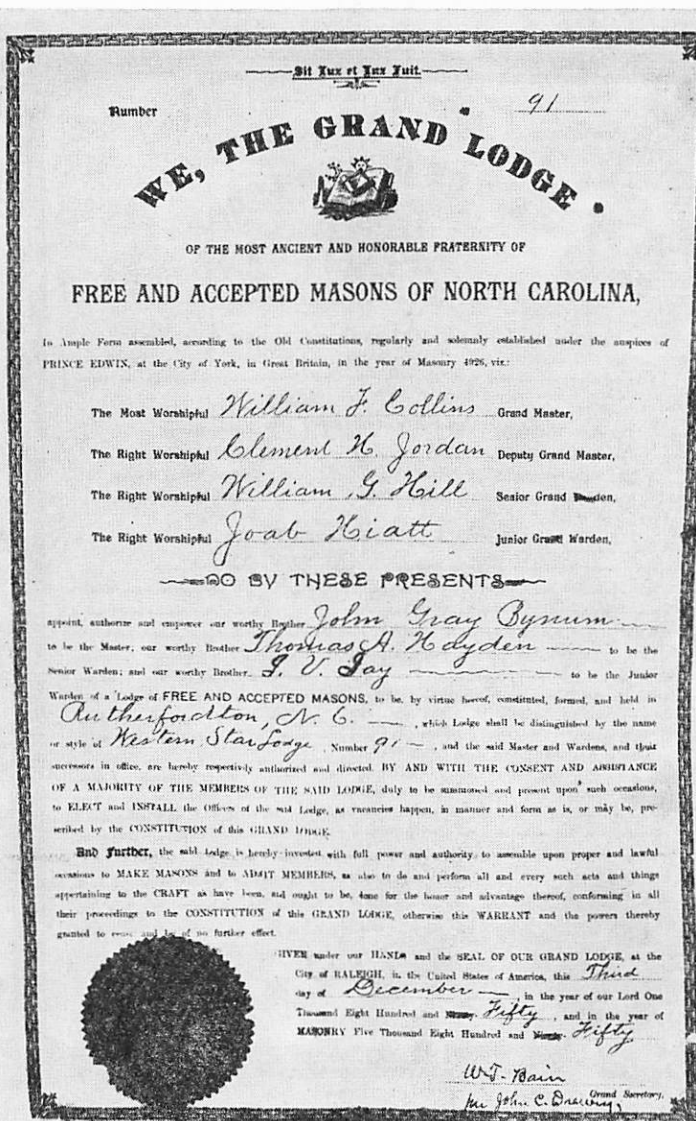 Sit Lux et Lux Fuit.
Number 91
WE, THE GRAND LODGE.
OF THE MOST ANCIENT AND HONORABLE FRATERNITY OF
FREE AND ACCEPTED MASONS OF NORTH CAROLINA,
In Ample Form assembled, according to the Old Constitutions, regularly and solemnly established under the auspices of
PRINCE EDWIN, at the City of York, in Great Britain, in the year of Masonry 4926, viz.:
The Most Worshipful William F. Collins Grand Master,
The Right Worshipful Clement H. Jordan Deputy Grand Master,
The Right Worshipful William G. Hill Senior Grand Warden,
The Right Worshipful Joab Hiatt Junior Grand Warden,
DO BY THESE PRESENTS
appoint, authorize and empower our worthy Brother John Gray Bynum
to be the Master; our worthy Brother Thomas A. Hayden to be the
Senior Warden; and our worthy Brother to be the Junior
Warden of a Lodge of FREE AND ACCEPTED MASONS, to be, by virtue hereof, constituted, formed, and held in
Rutherfordton, N. C. , which Lodge shall be distinguished by the name
or style of Western Star Lodge , Number 91 , and the said Master and Wardens, and their
successors in office, are hereby respectively authorized and directed, BY AND WITH THE CONSENT AND ASSISTANCE
OF A MAJORITY OF THE MEMBERS OF THE SAID LODGE, duly to be summoned and present upon such occasions,
to ELECT and INSTALL the Officers of the said Lodge, as vacancies happen, in manner and form as is, or may be, pre-
scribed by the CONSTITUTION of this GRAND LODGE.
And Further, the said Lodge is hereby invested with full power and authority to assemble upon proper and lawful
occasions to MAKE MASONS and to ADMIT MEMBERS, as also to do and perform all and every such acts and things
appertaining to the CRAFT as have been, and ought to be, done for the honor and advantage thereof, conforming in all
their proceedings to the CONSTITUTION of this GRAND LODGE, otherwise this WARRANT and the powers thereby
granted to cease and be of no further effect.
GIVEN under our HANDS and the SEAL OF OUR GRAND LODGE, at the
City of RALEIGH, in the United States of America, this Third
day of December , in the year of our Lord One
Thousand Eight Hundred and Fifty , and in the year of
MASONRY Five Thousand Eight Hundred and Fifty
W. T. Bain
Grand Secretary,
per John C. Drewry,